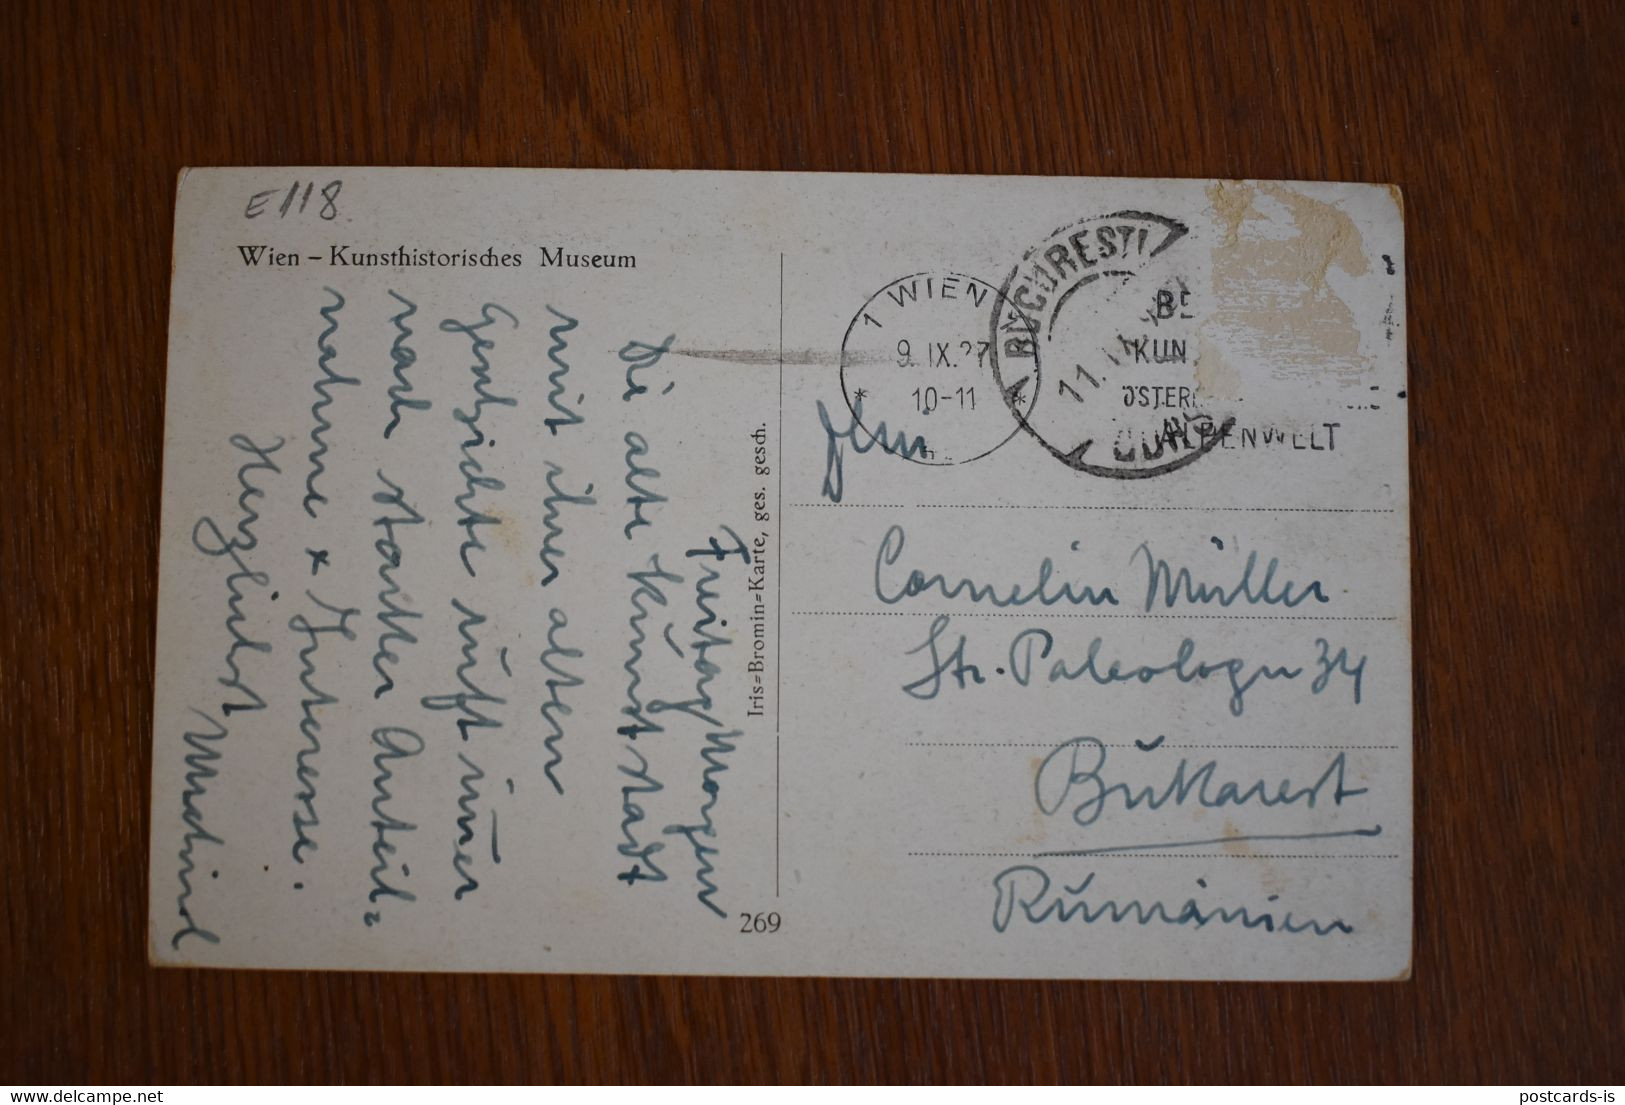 E118
Wien – Kunsthistorisches Museum
Freitag Morgen
Die alte Kunststadt
mit ihren alten
ruft immer
nach starker Anteil=
nahme & Interesse.
Herzlichst
Iris=Bromin=Karte, ges. gesch.
269
1 WIEN
9. IX. 37
10-11
BUCURESTI
11.
BE
KUN
ÖSTERR
ALPENWELT
Cornelin Müller
Str. Paleologu 34
Bukarest
Rumänien
postcards-is